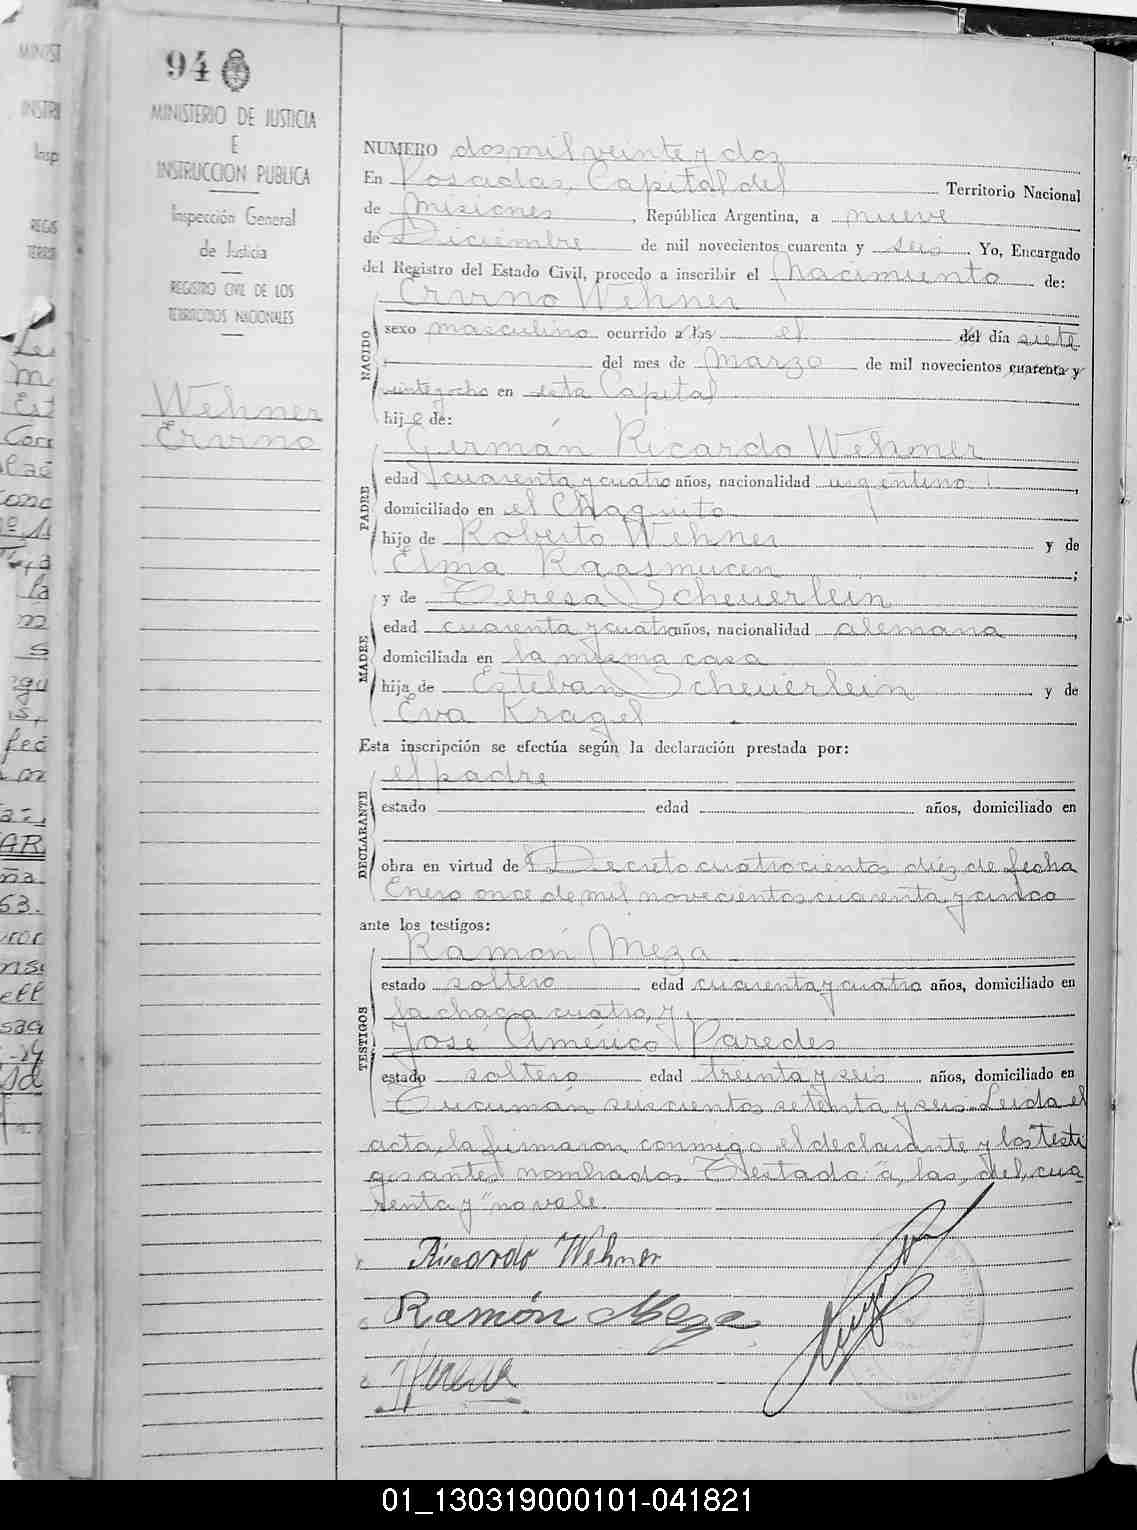 94
MINISTERIO DE JUSTICIA
E
INSTRUCCION PUBLICA
Inspección General
de Justicia
REGISTRO CIVIL DE LOS
TERRITORIOS NACIONALES
Wehner
Ervino
NUMERO dosmil veinte y dos
En Posadas, Capital del Territorio Nacional
de Misiones, República Argentina, a nueve
de Diciembre de mil novecientos cuarenta y seis. Yo, Encargado
del Registro del Estado Civil, procedo a inscribir el Nacimiento de:
Ervino Wehner
NACIDO
sexo masculino ocurrido a las el del día siete
del mes de Marzo de mil novecientos cuarenta y
veinteyocho en esta Capital
hijo de:
Germán Ricardo Wehner
PADRE
edad cuarenta y cuatro años, nacionalidad argentino,
domiciliado en el Chaquito
hijo de Roberto Wehner y de
Elma Raasmucen;
MADRE
y de Teresa Scheuerlein
edad cuarenta y cuatro años, nacionalidad alemana,
domiciliada en la misma casa
hija de Esteban Scheuerlein y de
Eva Kragel
Esta inscripción se efectúa según la declaración prestada por:
DECLARANTE
el padre
estado edad años, domiciliado en
obra en virtud de Decreto cuatrocientos diéz de fecha
Enero once de mil novecientos cuarenta y cinco
ante los testigos:
TESTIGOS
Ramón Meza
estado soltero edad cuarenta y cuatro años, domiciliado en
la chacra cuatro, y
José Américo Paredes
estado soltero edad treinta y seis años, domiciliado en
Tucumán seiscientos setenta y seis. Leida el
acta, la firmaron conmigo el declarante y los testi
gos antes nombrados. Testado: "a, las, del, cua
renta y" no vale.
Ricardo Wehner
Ramón Meza
01_130319000101-041821